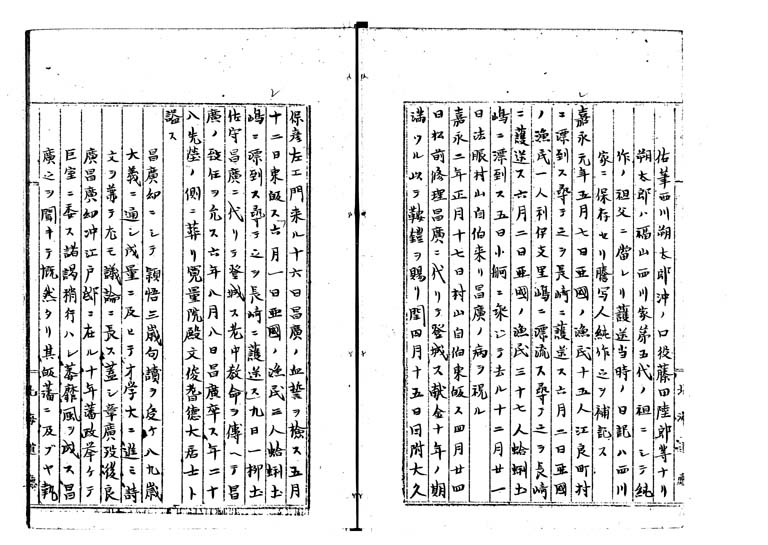 佑筆西川朔太郎沖ノ口役藤田陸郎等ナリ
朔太郎ハ福山西川家第五代ノ祖ニシテ純
作ノ祖父ニ當レリ護送当時ノ日記ハ西川
家ニ保存セリ謄写人純作之ヲ補記ス
嘉永元年五月七日亜國ノ漁民十五人江良町村
ニ漂到ス尋テ之ヲ長崎ニ護送ス六月二日亜國
ノ漁民一人利伊支里嶋ニ漂流ス尋テ之ヲ長崎
ニ護送ス六月二日亜國ノ漁民三十七人蛤蜊土
嶋ニ漂到ス五日小舸ニ乘シテ去ル十二月廿一
日法眼村山自伯来リ昌廣ノ病ヲ視ル
嘉永二年正月十七日村山自伯東皈ス四月廿四
日松前修理昌廣ニ代リテ登城ス献金十年ノ期
満ツルヲ以テ鞍鐙ヲ賜リ閏四月十五日国附大久
保彦左エ門来ル十六日昌廣ノ血誓ヲ検ス五月
十二日東皈ス六月一日亜國ノ漁民三人蛤蜊土
嶋ニ漂到ス尋テ之ヲ長崎ニ護送ス九日一柳土
佐守昌廣ニ代リテ登城ス老中教命ヲ傳ヘテ昌
廣ノ致仕ヲ允ス六年八月八日昌廣卒ス年二十
八先塋ノ側ニ葬リ寛量院殿文俊耆德大居士ト
諡ス
昌廣幼ニシテ頴悟三歳句讀ヲ受ケ八九歳
大義ニ通シ成童ニ及ヒテ才學大ニ進ミ詩
文ヲ善ク尤モ議論ニ長ス蓋シ章廣歿後良
廣昌廣幼冲江戸邸ニ在ル十年藩政挙ケテ
巨室ニ委ス諸謁稍行ハレ蓁靡風ヲ成ス昌
廣之ヲ聞キテ慨然タリ其皈藩ニ及ブヤ執
北海道廳